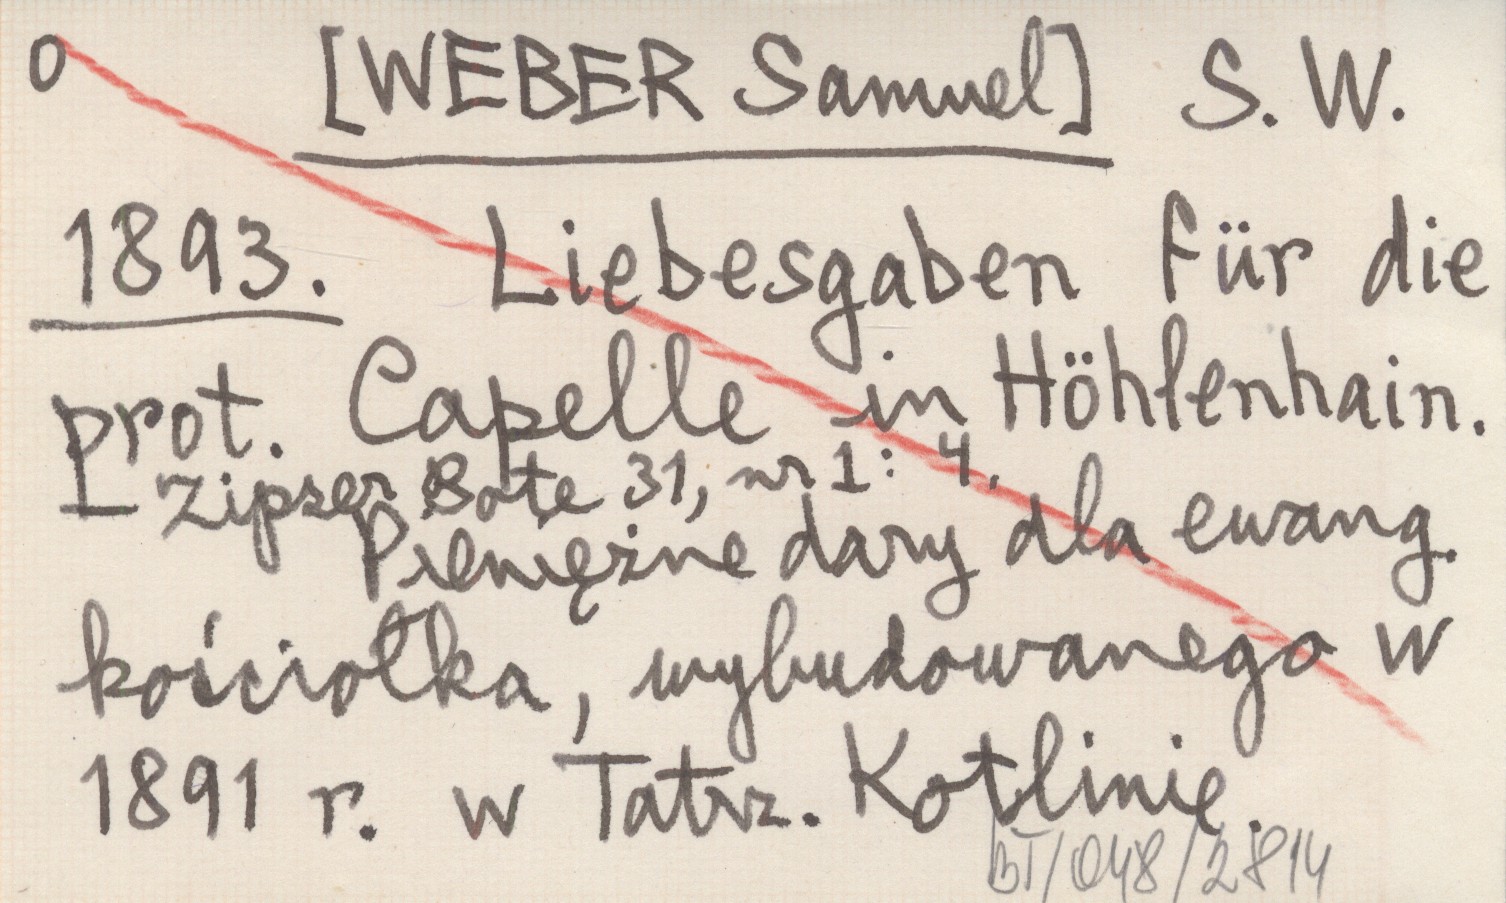 O [WEBER Samuel] S. W.
1893. Liebesgaben für die
prot. Capelle in Höhlenhain.
Zipser Bote 31, nr 1: 4.
Pieniężne dary dla ewang.
kościołka, wybudowanego w
1891 r. w Tatrz. Kotlinie.
BT/048/2814